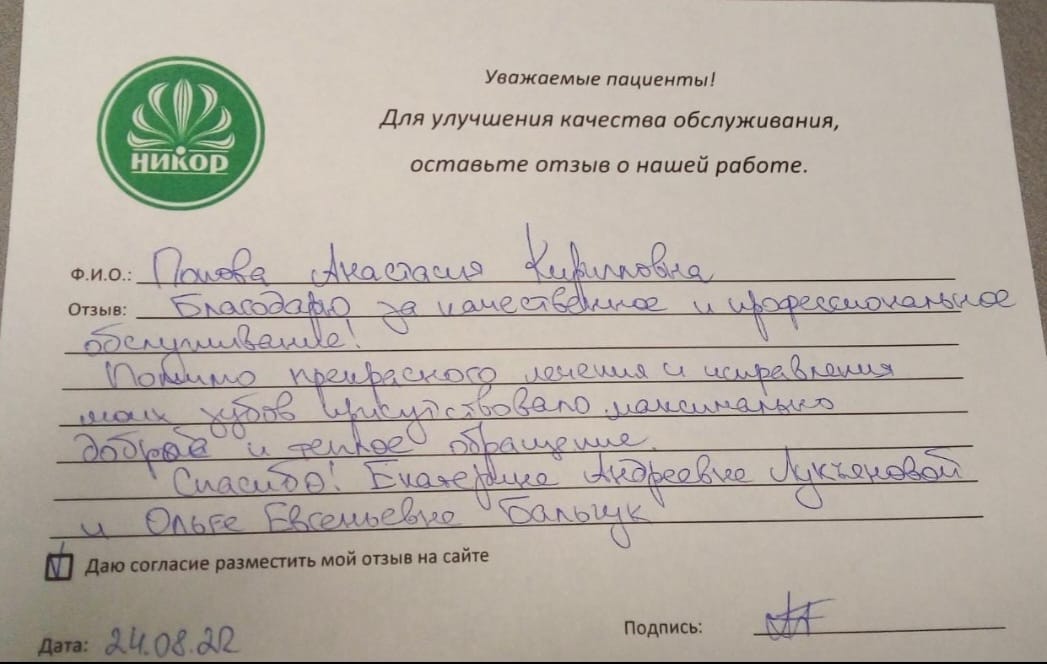 НИКОР
Уважаемые пациенты!
Для улучшения качества обслуживания,
оставьте отзыв о нашей работе.
Ф.И.О.: Попова Анастасия Кирилловна
Отзыв: Благодарю за качественное и профессиональное
обслуживание!
Помимо прекрасного лечения и исправления
моих зубов присутствовало максимально
доброе и теплое обращение.
Спасибо! Екатерине Андреевне Лукъеновой
и Ольге Евгеньевне Бальчук
Даю согласие разместить мой отзыв на сайте
Дата: 24.08.22
Подпись: